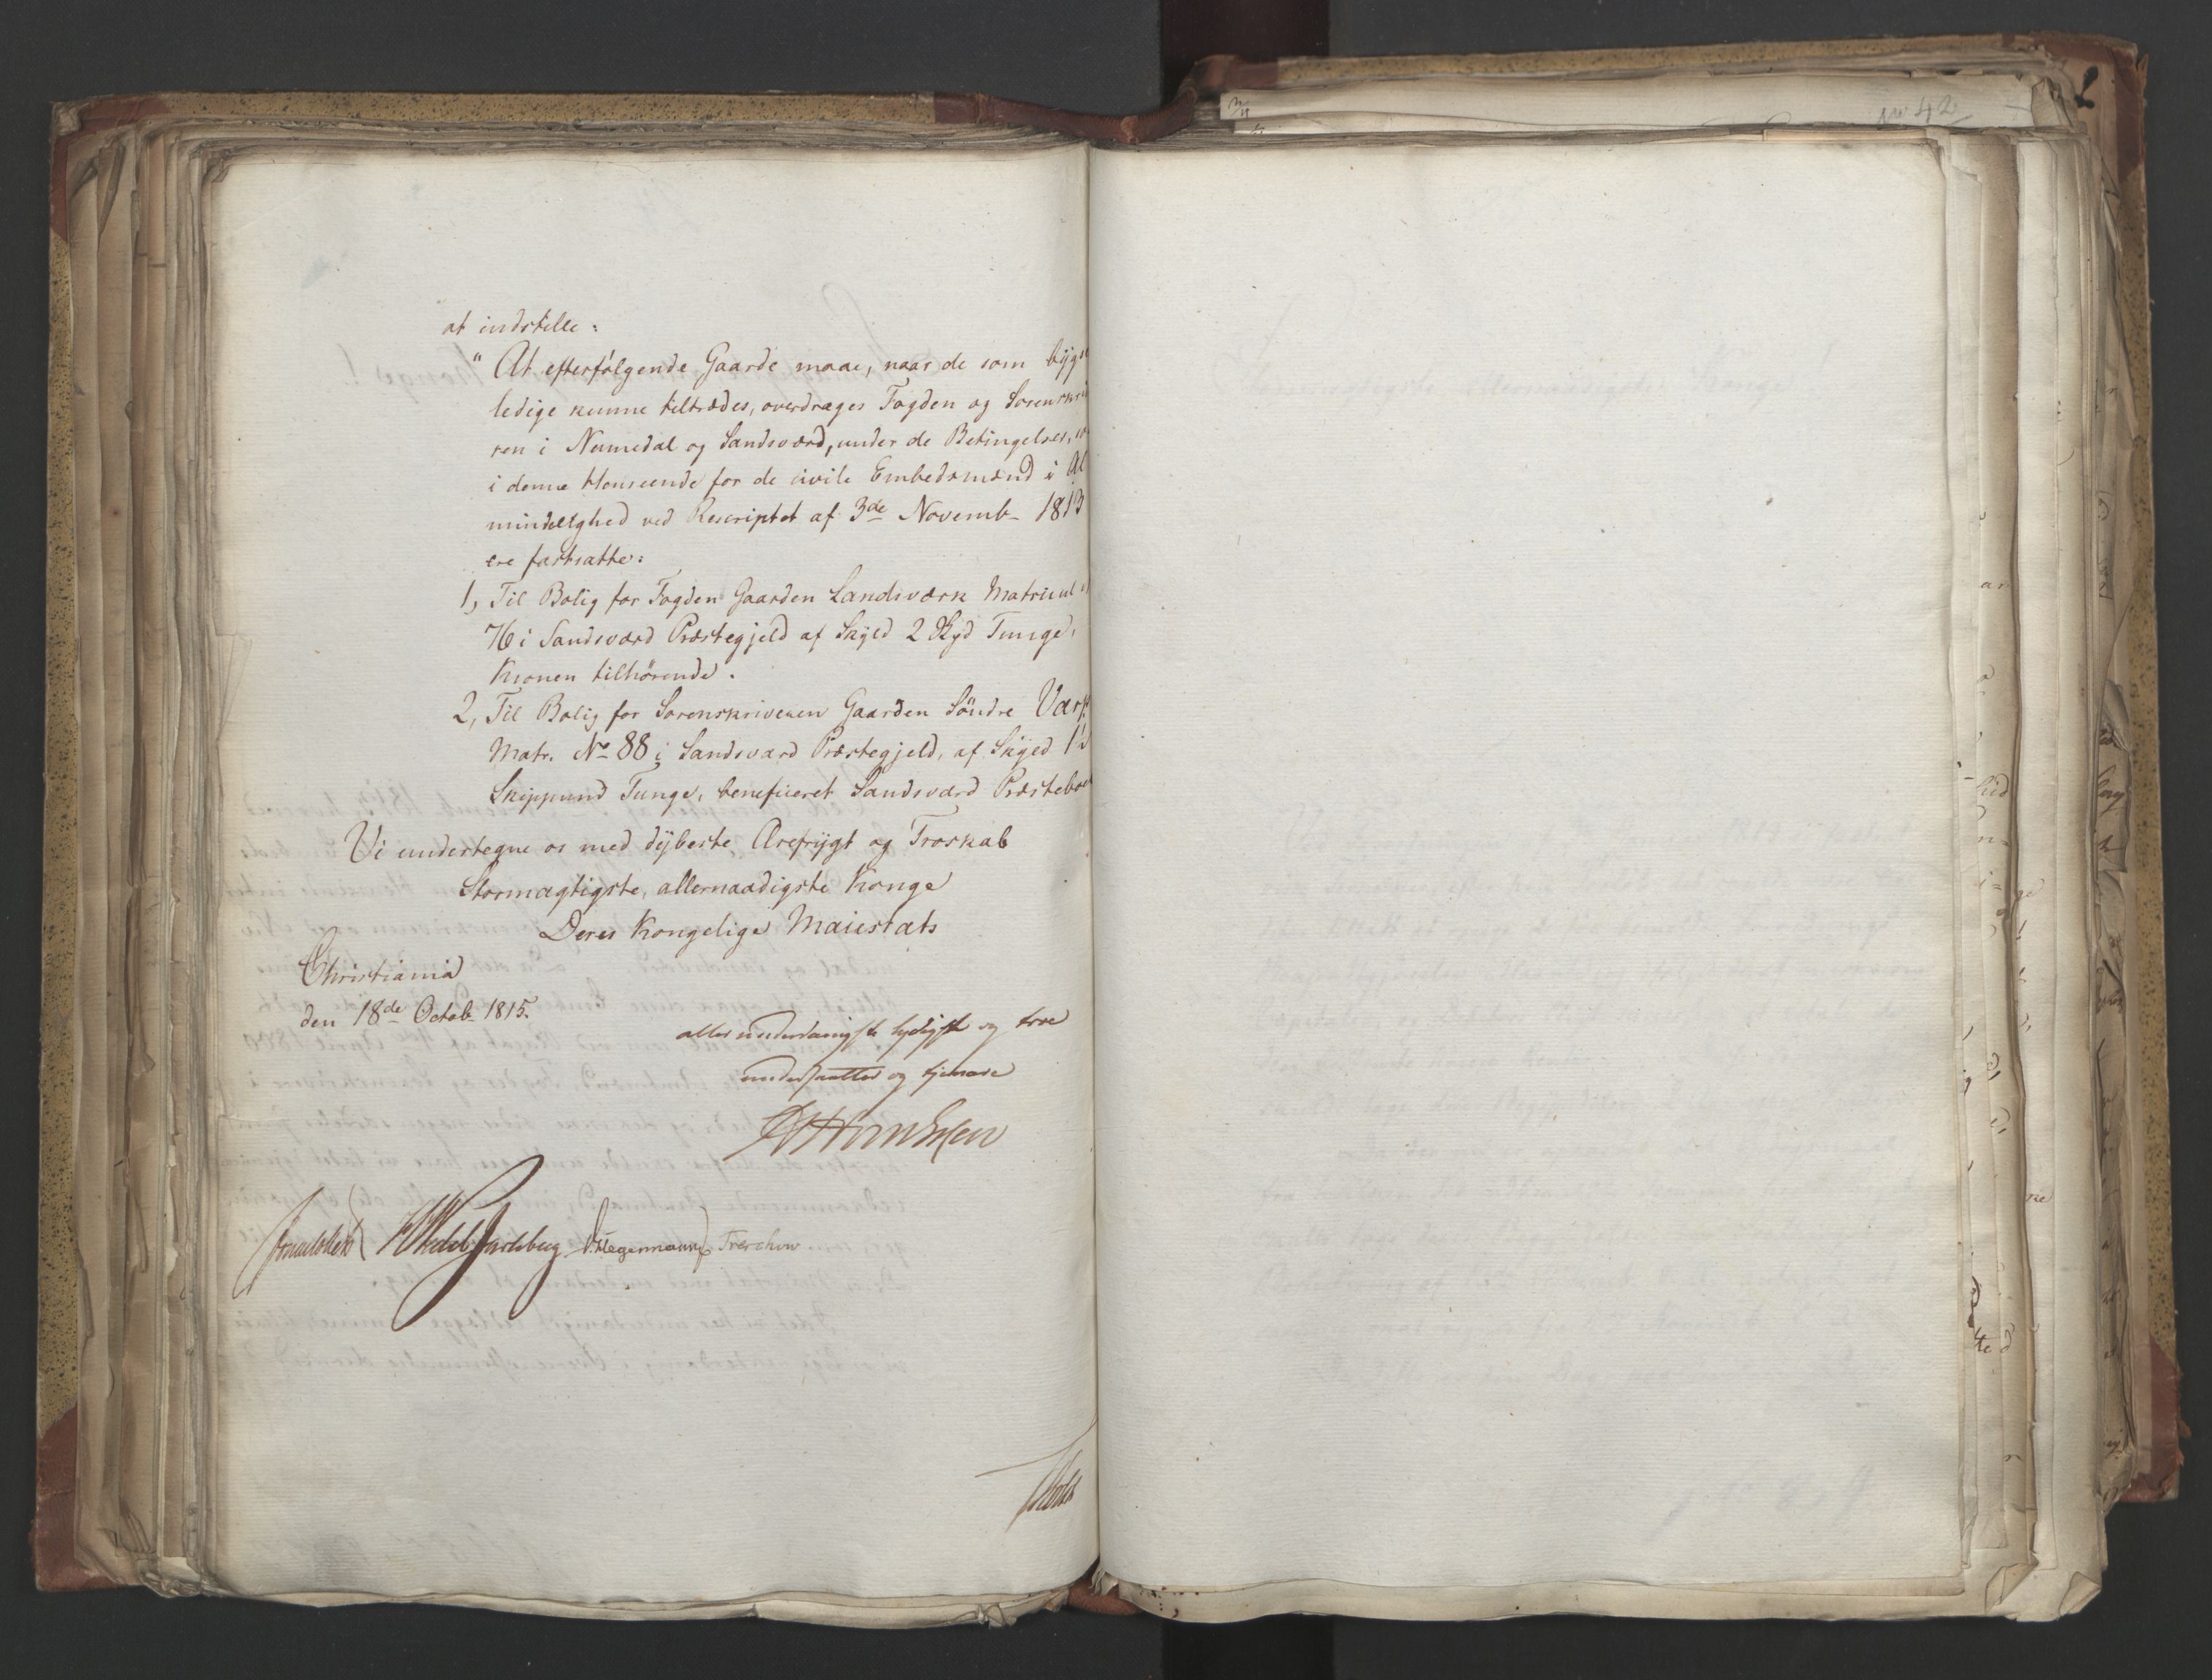 at indstille:
"At efterfølgende Gaarde maae, naar de som byg
ledige kunne tiltrædes, overdrages Fogden og Sorenskri
ren i Numedal og Sandsværd, under de Betingelser,
i denne Henseende for de civile Embedsmænd i Al
mindelighed ved Rescriptet af 3de Novemb- 1813
ere fastsatte:
1, Til Bolig for Fogden Gaarden Landsværk Matricul
76 i Sandsværd Præstegjeld af Skyld 2 Tunge,
Kronen tilhørende.
2, Til Bolig for Sorenskriveren Gaarden Söndre Værp
Matr. No 88 i Sandsværd Præstegjeld, af Skyld
Skippund Tunge, beneficeret Sandsværd Præstebo
Vi undertegne os med dybeste Ærefrygt og Troskab
Stormægtigste, allernaadigste Konge
Deres Kongelige Maiestæts
Christiania
den 18de Octob- 1815.
allerunderdanigste lydigste og troe
undersaatter og tjenere
Sommerhielm Wedel Jarlsberg D. Hegermann Treschow